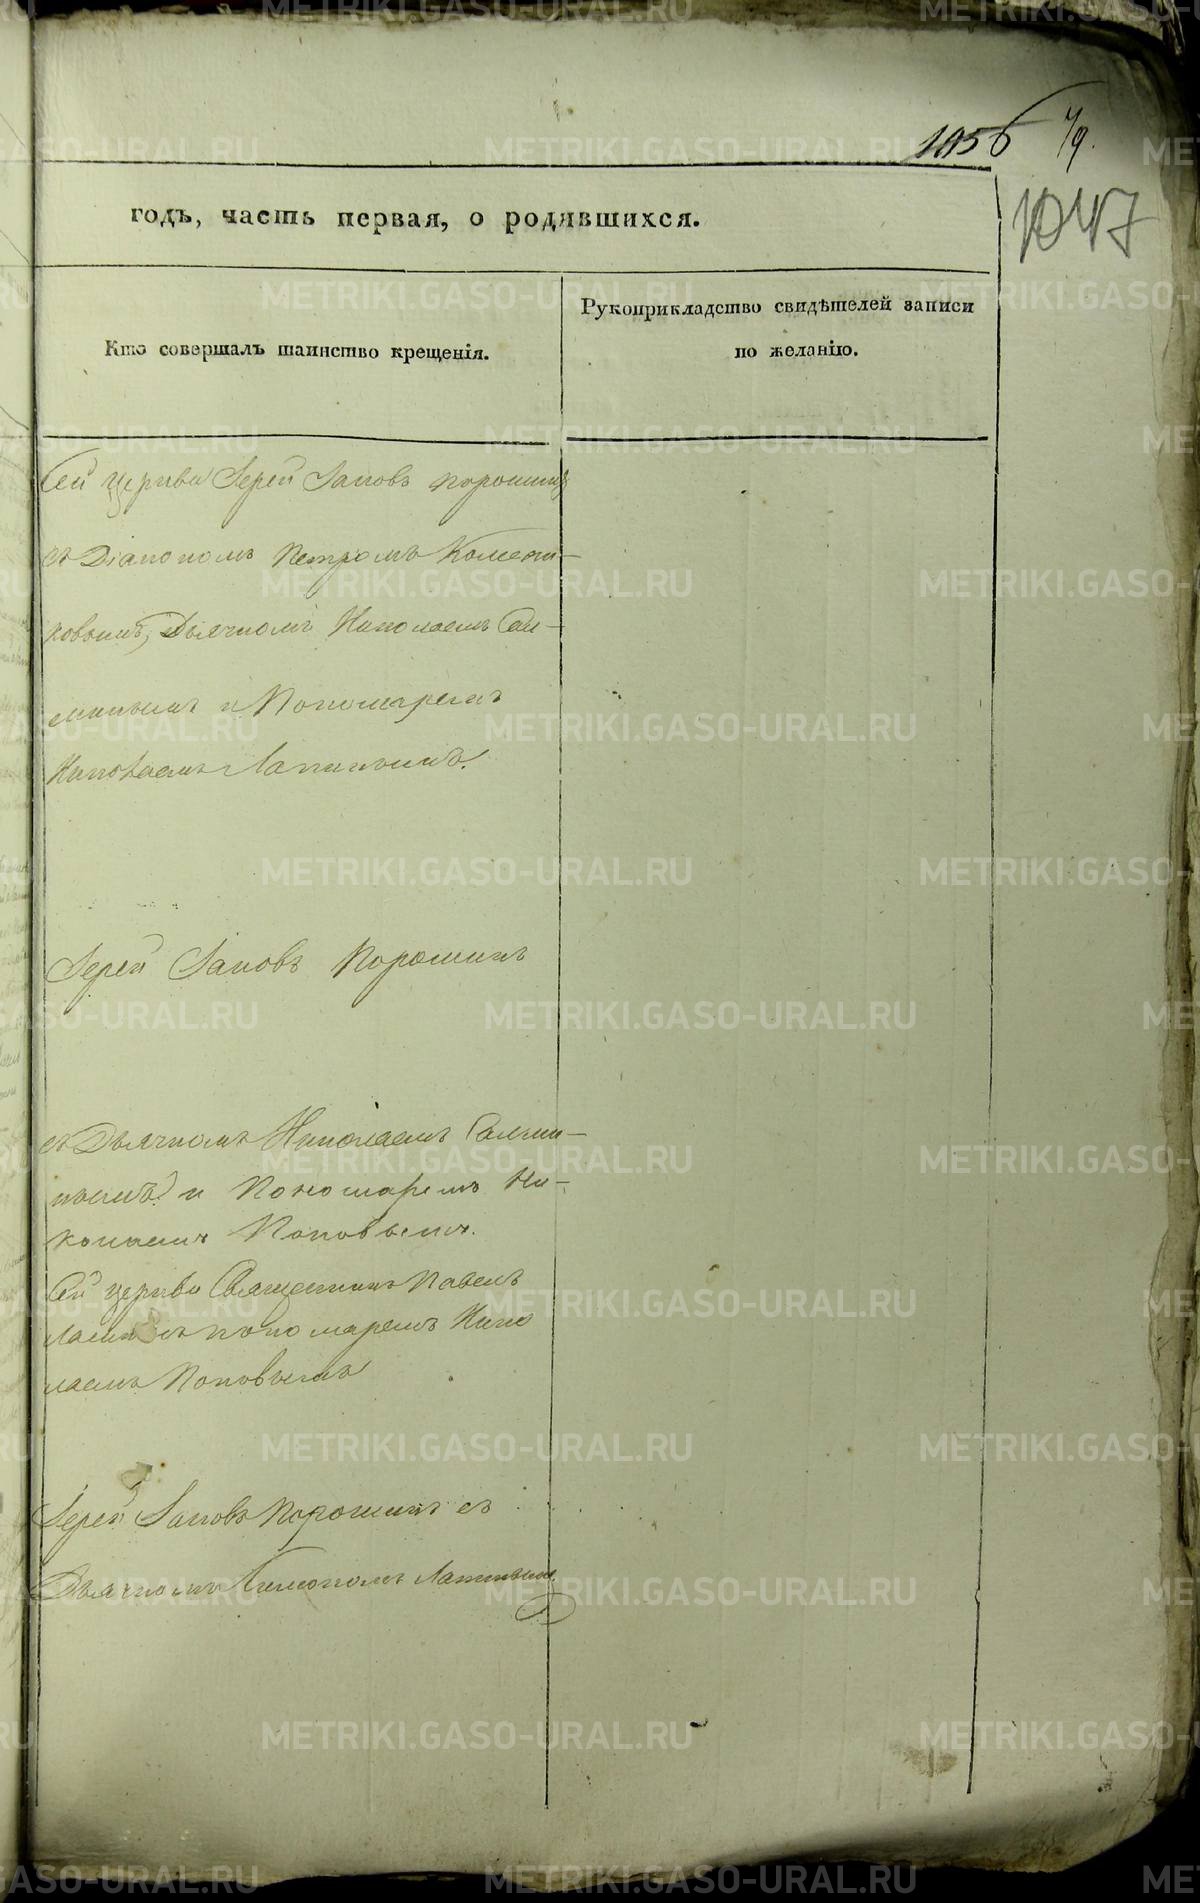 1056 79.
1047
годъ, часть первая, о родившихся.
Кто совершалъ таинство крещенія.
Рукоприкладство свидѣтелей записи
по желанію.
Сей церкви Іерей Іаковъ Порошинъ
съ Діакономъ Петромъ
ковымъ, Дьячкомъ Николаемъ
и Пономаремъ
Николаемъ
Іерей Іаковъ Порошинъ
съ Дьячкомъ Николаемъ
и Пономаремъ Ни-
колаемъ Поповымъ.
Сей церкви Священникъ Павелъ
съ пономаремъ Нико
лаемъ Поповымъ
Іерей Іаковъ Порошинъ съ
Дьячкомъ
METRIKI.GASO-URAL.RU